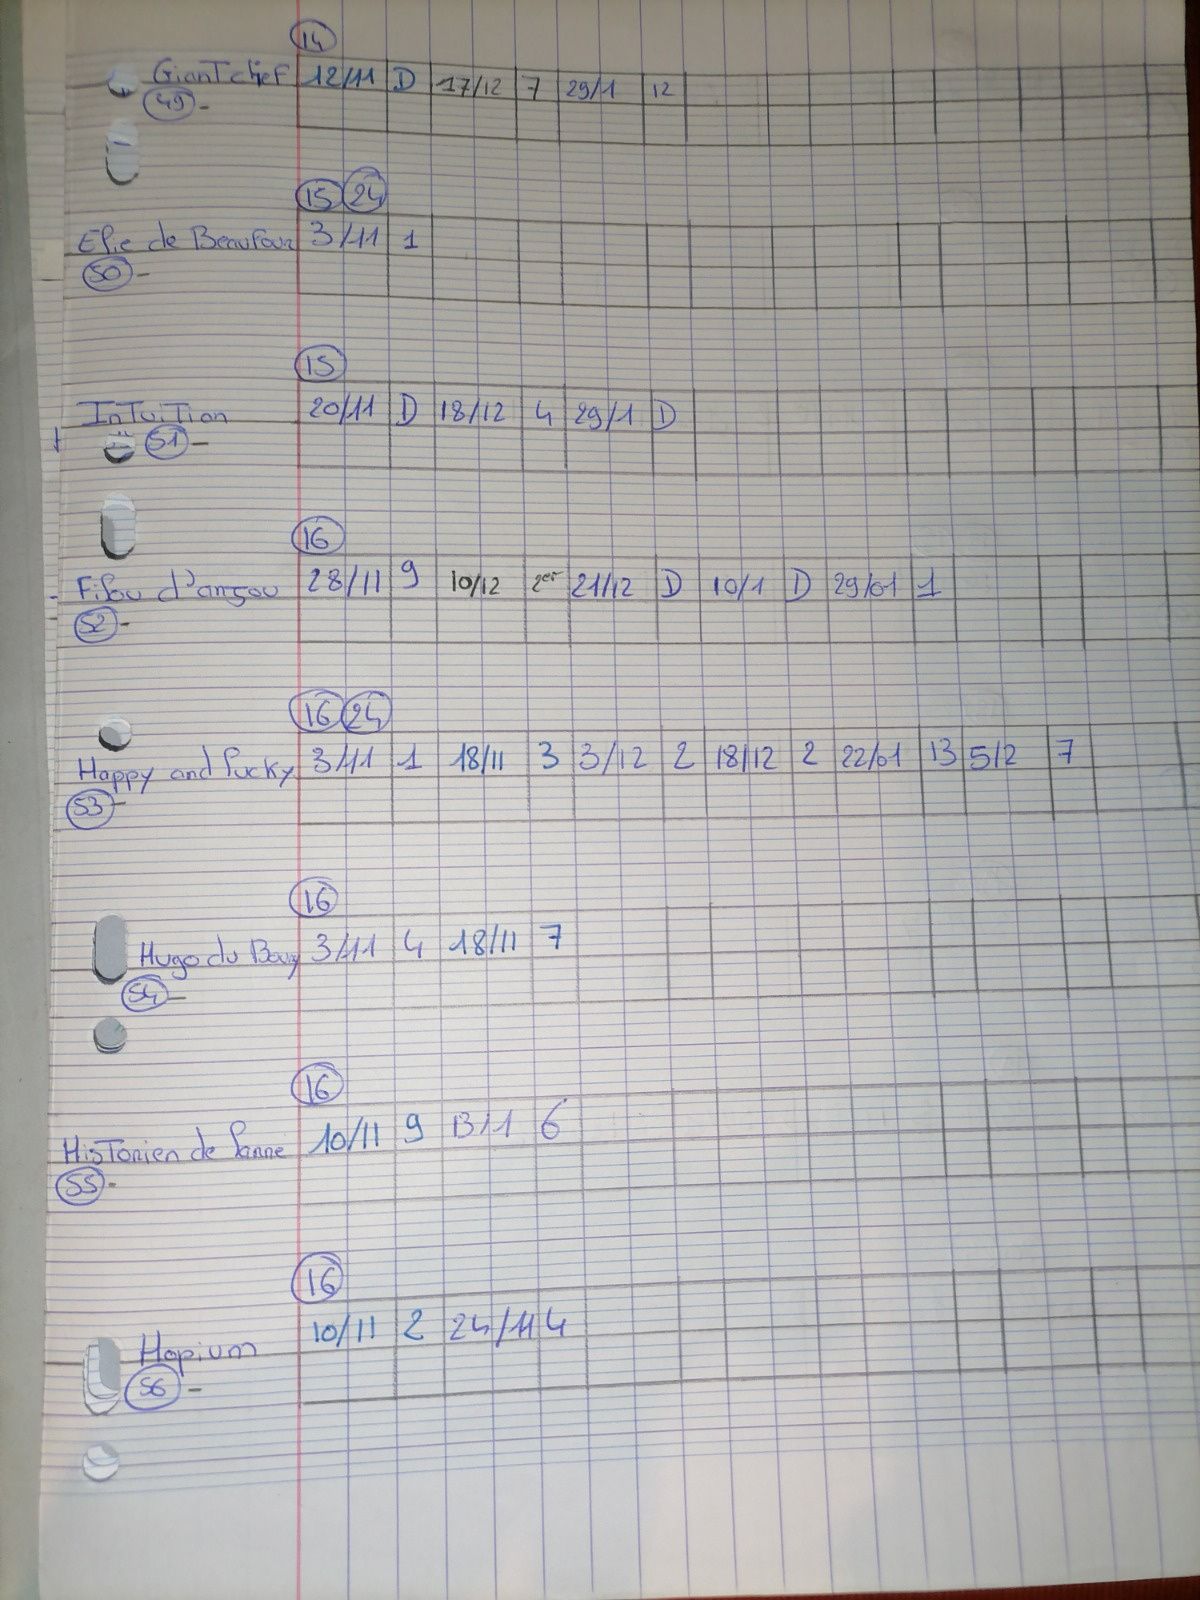 14
Giant chef 12/11 D 17/12 7 29/1 12
49 -
15 24
Elie de Beaufour 3/11 1
50 -
15
Intuition 20/11 D 18/12 4 29/1 D
51 -
16
Filou d'anjou 28/11 9 10/12 2er 21/12 D 10/1 D 29/01 1
52 -
16 24
Happy and lucky 3/11 1 18/11 3 3/12 2 18/12 2 22/01 13 5/2 7
53 -
16
Hugo du Bouy 3/11 4 18/11 7
54 -
16
Historien de Panne 10/11 9 13/1 6
55 -
16
Hopium 10/11 2 24/11 4
56 -